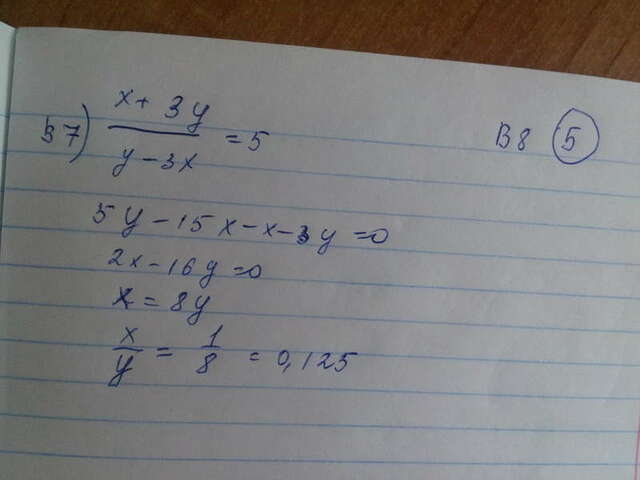 В7) x + 3y / y - 3x = 5
В8 5
5y - 15x - x - 3y = 0
2x - 16y = 0
x = 8y
x/y = 1/8 = 0,125